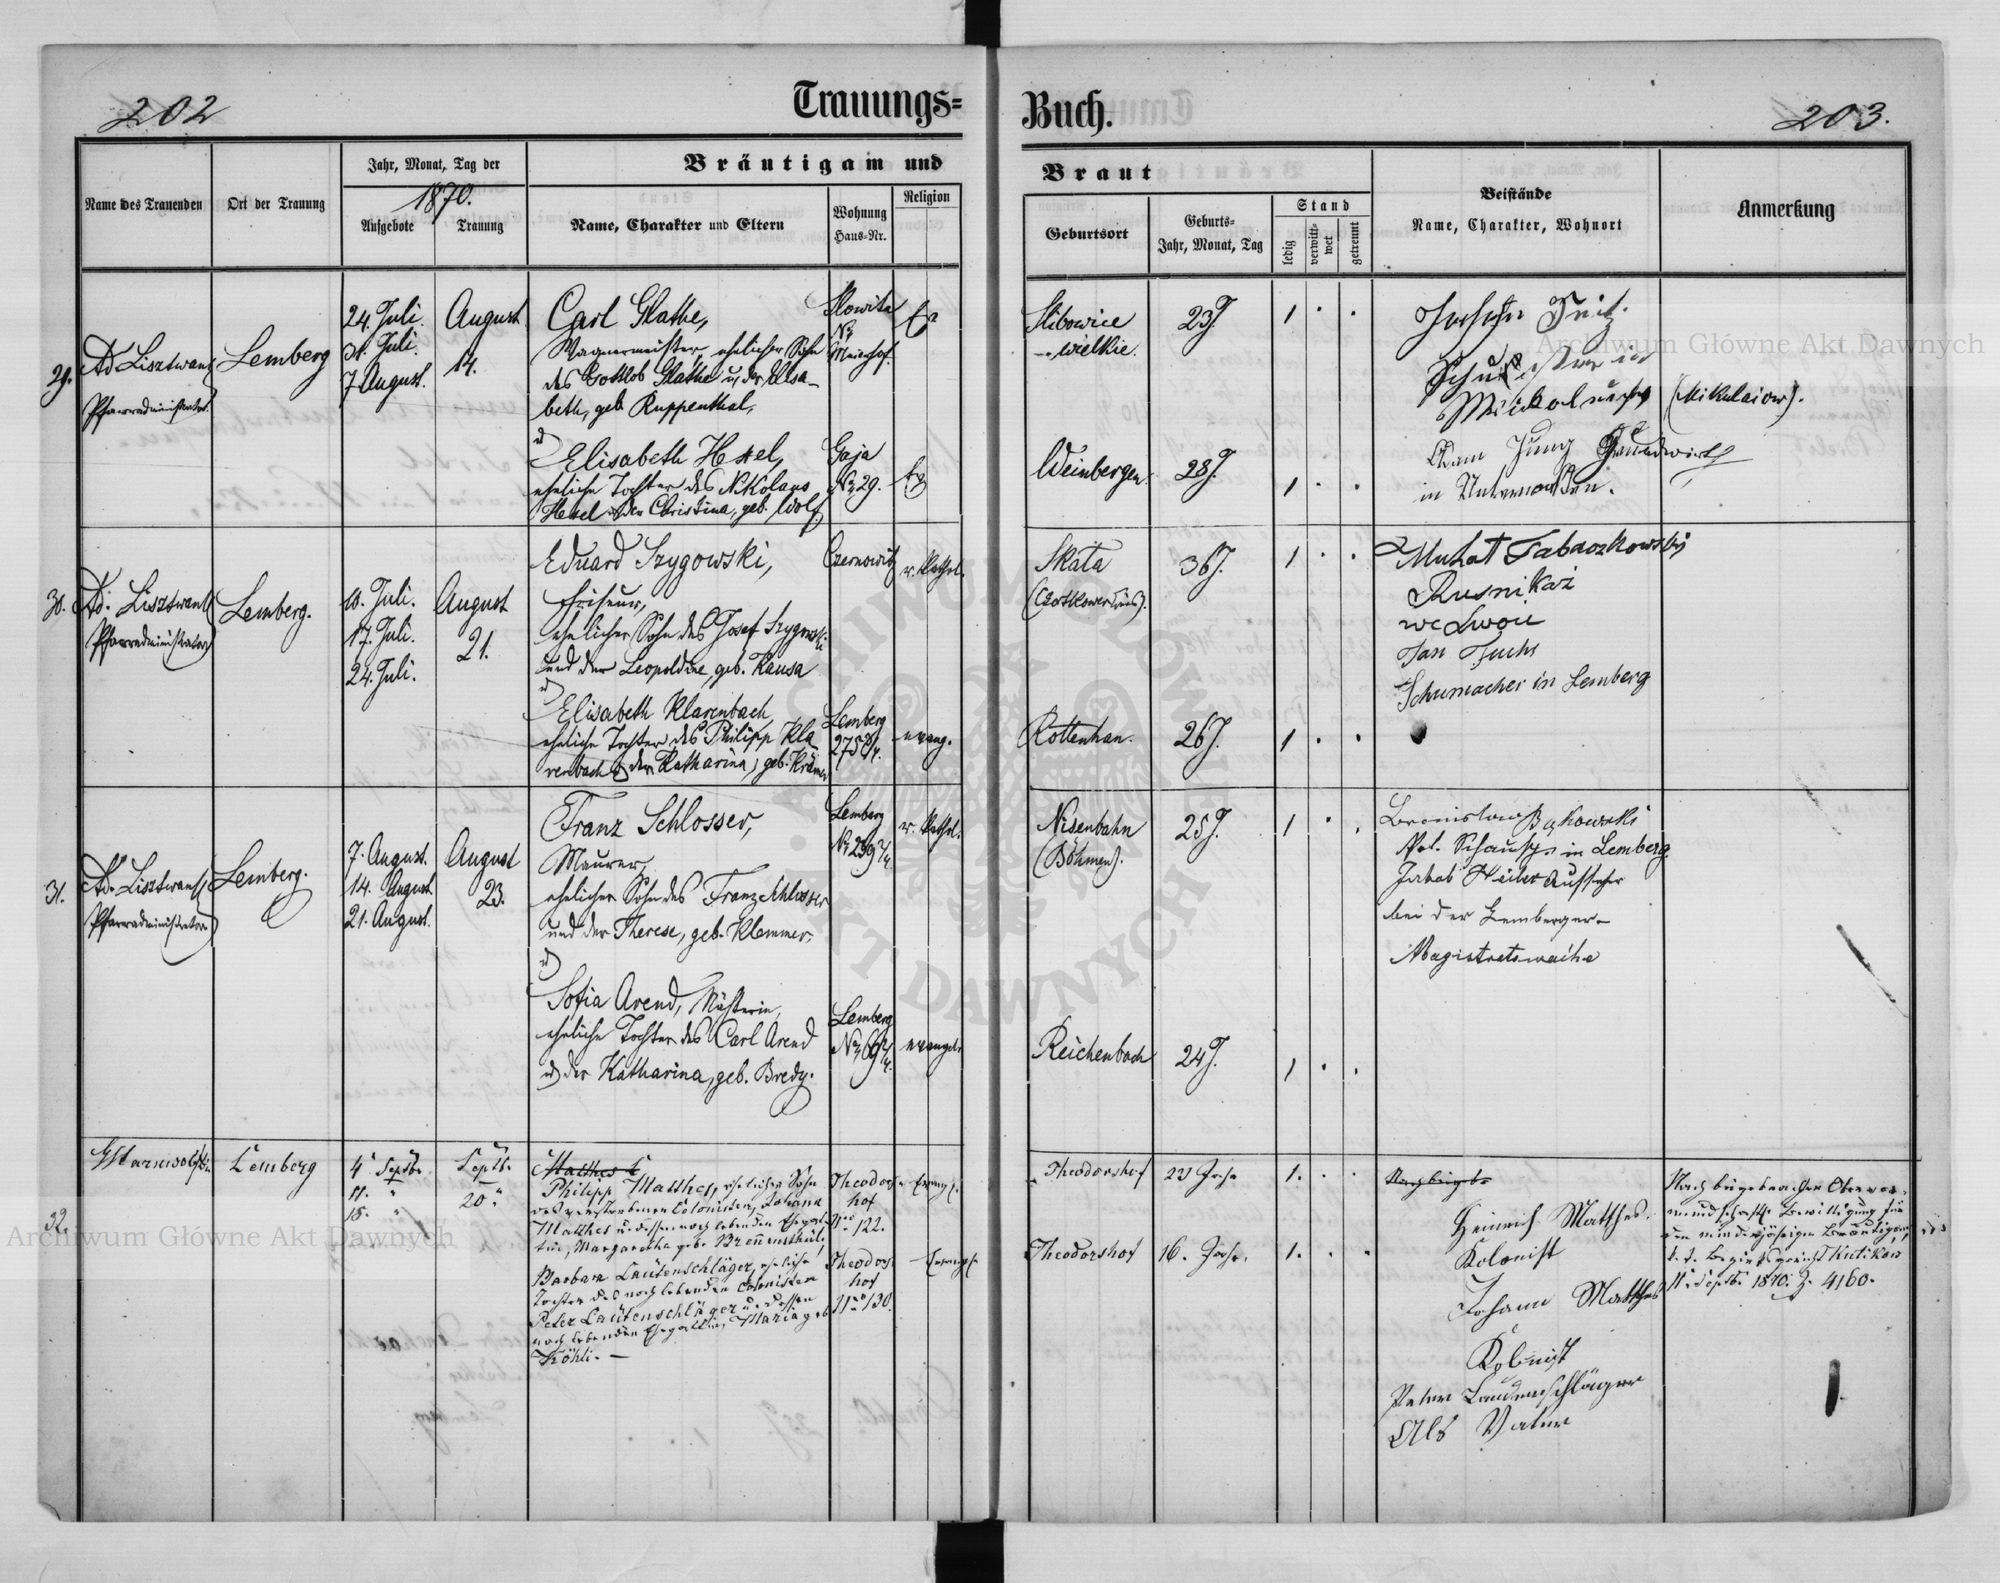 202
Trauungs=
Buch.
203.
Name des Trauenden
Ort der Trauung
Jahr, Monat, Tag der
1870.
Aufgebote
Trauung
Bräutigam und
Name, Charakter und Eltern
Wohnung
Haus-Nr.
Religion
Braut
Geburtsort
Geburts-
Jahr, Monat, Tag
Stand
ledig
verwitt-
wet
getrennt
Beistände
Name, Charakter, Wohnort
Anmerkung
29.
Ad Lisztwan
Pfarradministrator
Lemberg
24. Juli.
31. Juli.
7. August.
August
14.
Carl Glathe,
Wagnermeister, ehelicher Sohn
des Gottlob Glathe u. der Elisa-
beth, geb. Ruppenthal,
Elisabeth Hexel,
eheliche Tochter des Nikolaus
Hexel u. der Christina, geb. Wolf
Meierhof.
Gaja
No 29.
wielkie.
23 J.
1 . .
Weinbergen.
28 J.
1 . .
(Mikulaiow).
Adam Jung Grundwirth
in Unterwalden.
30.
Ad. Lisztwan
Pfarradministrator
Lemberg.
10. Juli.
17. Juli.
24. Juli.
August
21.
Eduard Szygowski,
Friseur,
ehelicher Sohn des Josef Szygowski
und der Leopoldine, geb. Kausa
Elisabeth Klarenbach,
eheliche Tochter des Philipp Kla
renbach u. der Katharina, geb. Krämer
Czernowitz
r. kathol.
Lemberg
evang.
Skala
36 J.
1 . .
Rottenhan.
26 J.
1 . .
Rusnikaż
we Lwowie
Jan Fuchs
Schumacher in Lemberg
31.
Ad. Lisztwan
Pfarradministrator
Lemberg.
7. August.
14. August.
21. August.
August
23.
Franz Schlosser,
Maurer,
ehelicher Sohn des Franz Schlosser
und der Therese, geb. Klemmer,
Sofia Arend, Nähterin,
eheliche Tochter des Carl Arend
u. der Katharina, geb. Bredy.
Lemberg
r. kathol.
Lemberg
evangel.
Nisenbahn
(Böhmen).
25 J.
1 . .
Reichenbach
24 J.
1 . .
in Lemberg
Jakob Aufseher
bei der Lemberger
Magistratswache
32.
Lemberg
4. Septbr.
11. "
18. "
Septb.
20.
Philipp Matthes, ehelicher Sohn
des verstorbenen Colonisten, Johann
Matthes u. dessen noch lebenden Ehegat-
tin, Margaretha geb.
Barbara Lautenschläger, eheliche
Tochter des noch lebenden Colonisten
Peter Lautenschläger u. dessen
noch lebenden Ehegattin, Maria geb.
Theodors
hof
122.
Evang.
Theodors
hof
130.
Evangel.
Theodorshof
23 Jahr
1. . .
Theodorshof
16. Jahr.
1. . .
Heinrich Matthes.
Kolonist
Johann Matthes
Kolonist
Peter Laudenschläger
Als Vater
Nach beigebrachter Obervor-
mundschaftl. Bewilligung für
den minderjährigen Bräutigam,
k. k. Bezirksgericht Kulikow
11. Septbr. 1870. Z. 4160.
Archiwum Główne Akt Dawnych
Archiwum Główne Akt Dawnych
ARCHIWUM GŁÓWNE
AKT DAWNYCH